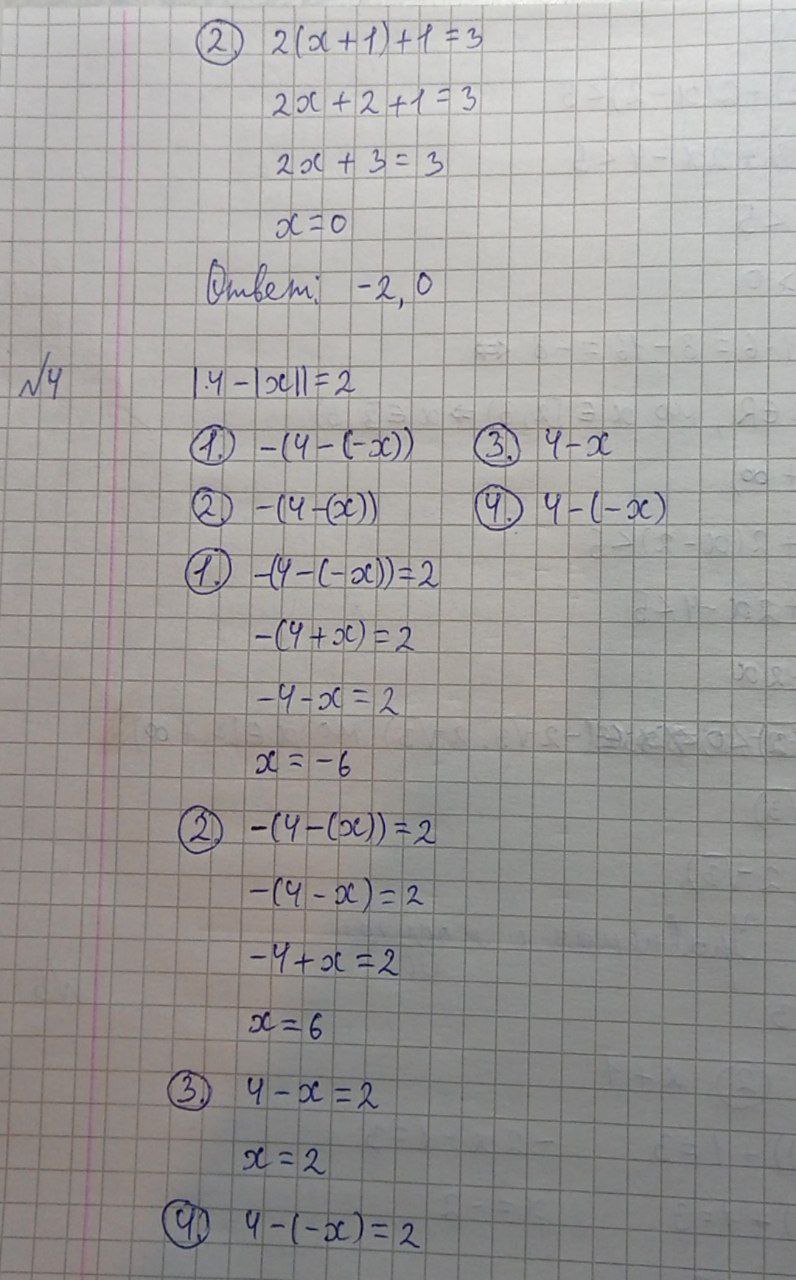 2. 2(x+1)+1=3
2x+2+1=3
2x+3=3
x=0
Ответ: -2, 0
№4 |4-|x||=2
1. -(4-(-x)) 3. 4-x
2. -(4-(x)) 4. 4-(-x)
1. -(4-(-x))=2
-(4+x)=2
-4-x=2
x=-6
2. -(4-(x))=2
-(4-x)=2
-4+x=2
x=6
3. 4-x=2
x=2
4. 4-(-x)=2